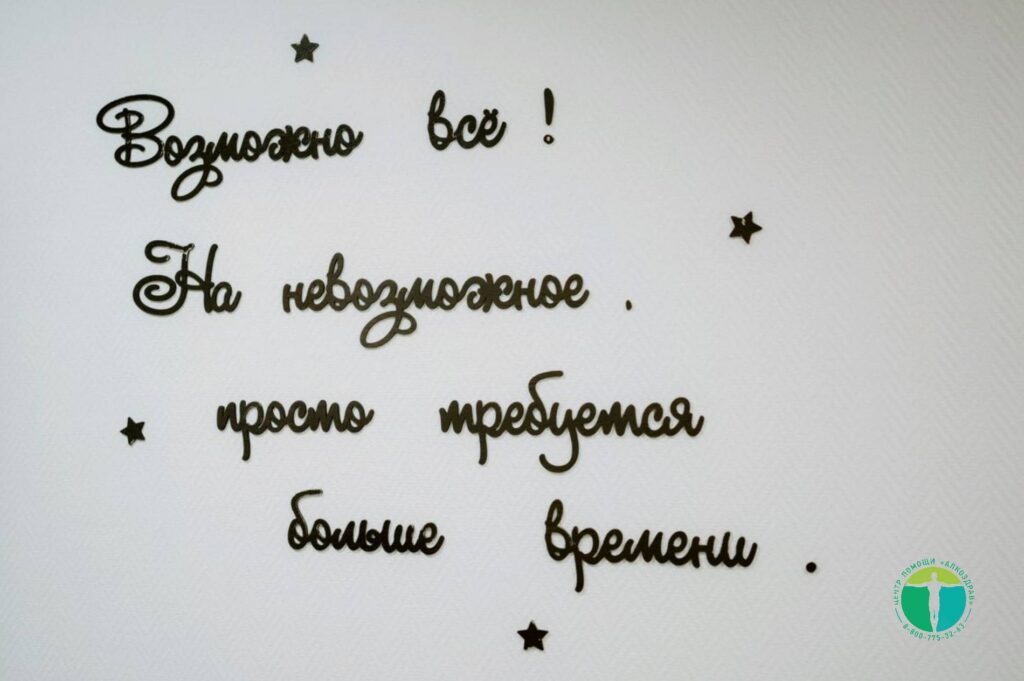 Возможно всё!
На невозможное .
просто требуется
больше времени .
ЦЕНТР ПОМОЩИ «АЛКОЗДРАВ»
8-800-775-32-63